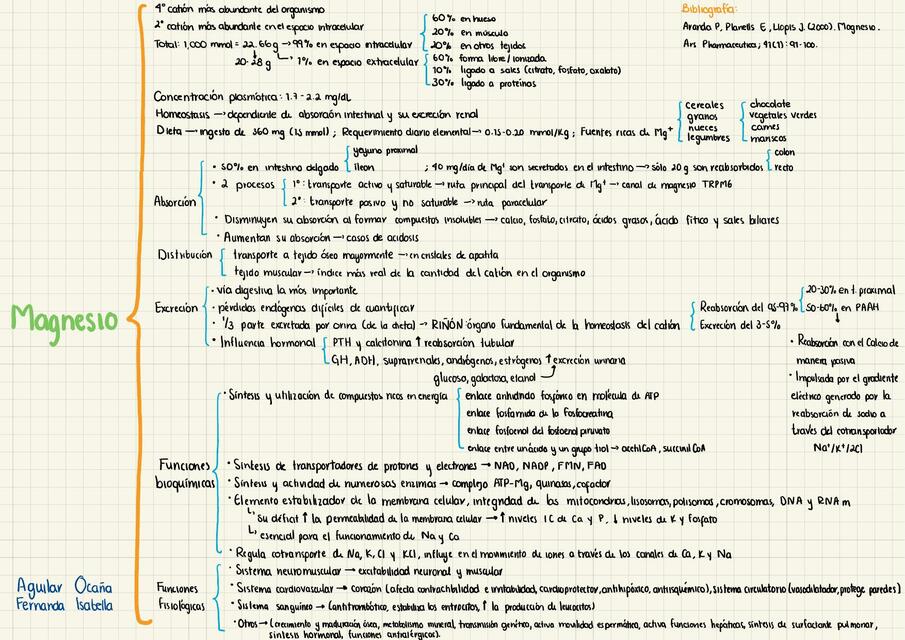 4° catión más abundante del organismo
2° catión más abundante en el espacio intracelular
Total: 1,000 mmol = 22.66g → 99% en espacio intracelular
60% en hueso
20% en músculo
20% en otros tejidos
20-28 g
1% en espacio extracelular
60% forma libre/ionizada
10% ligado a sales (citrato, fosfato, oxalato)
30% ligado a proteínas
Bibliografía:
Aranda P, Planells E, Llopis J. (2000). Magnesio.
Ars Pharmaceutica, 41(1): 91-100.
Concentración plasmática: 1.7-2.2 mg/dL
Homeostasis → dependiente de absorción intestinal y su excreción renal
Dieta → ingesta de 360 mg (15 mmol) ; Requerimiento diario elemental → 0.15-0.20 mmol/Kg ; Fuentes ricas de Mg⁺
cereales
granos
nueces
legumbres
chocolate
vegetales verdes
carnes
mariscos
Magnesio
Absorción
• 50% en intestino delgado
yeyuno proximal
íleon
; 40 mg/día de Mg⁺ son secretados en el intestino → sólo 20 g son reabsorbidos
colon
recto
• 2 procesos
1°: transporte activo y saturable → ruta principal del transporte de Mg⁺ → canal de magnesio TRPM6
2°: transporte pasivo y no saturable → ruta paracelular
• Disminuyen su absorción al formar compuestos insolubles → calcio, fosfato, citrato, ácidos grasos, ácido fítico y sales biliares
• Aumentan su absorción → casos de acidosis
Distribución
transporte a tejido óseo mayormente → en cristales de apatita
tejido muscular → índice más real de la cantidad del catión en el organismo
Excreción
• vía digestiva la más importante
• pérdidas endógenas difíciles de cuantificar
• 1/3 parte excretada por orina (de la dieta) → RIÑÓN: órgano fundamental de la homeostasis del catión
Reabsorción del 95-97%
Excreción del 3-5%
20-30% en t. proximal
50-60% en PAAH
• Reabsorción con el Calcio de
manera pasiva
• Impulsada por el gradiente
eléctrico generado por la
reabsorción de sodio a
través del cotransportador
Na⁺/K⁺/2Cl
• Influencia hormonal
PTH y calcitonina ↑ reabsorción tubular
GH, ADH, suprarrenales, andrógenos, estrógenos ↑ excreción urinaria
glucosa, galactosa, etanol
Funciones
bioquímicas
• Síntesis y utilización de compuestos ricos en energía
enlace anhidrido fosfórico en molécula de ATP
enlace fosfamida de la fosfocreatina
enlace fosfoenol del fosfoenol piruvato
enlace entre un ácido y un grupo tiol → acetil CoA, succinil CoA
• Síntesis de transportadores de protones y electrones → NAD, NADP, FMN, FAD
• Síntesis y actividad de numerosas enzimas → complejo ATP-Mg, quinasas, cofactor
• Elemento estabilizador de la membrana celular, integridad de las mitocondrias, lisosomas, polisomas, cromosomas, DNA y RNAm
Su déficit ↑ la permeabilidad de la membrana celular → ↑ niveles IC de Ca y P, ↓ niveles de K y fosfato
esencial para el funcionamiento de Na y Ca
• Regula cotransporte de Na, K, Cl y KCl, influye en el movimiento de iones a través de los canales de Ca, K y Na
Aguilar Ocaña
Fernanda Isabella
Funciones
fisiológicas
• Sistema neuromuscular → excitabilidad neuronal y muscular
• Sistema cardiovascular → corazón (afecta contractibilidad e irritabilidad, cardioprotector, antihipóxico, antiisquémico), sistema circulatorio (vasodilatador, protege paredes)
• Sistema sanguíneo → (antitrombótico, estabiliza los eritrocitos, ↑ la producción de leucocitos)
• Otros → (crecimiento y maduración ósea, metabolismo mineral, transmisión genética, activa movilidad espermática, activa funciones hepáticas, síntesis de surfactante pulmonar,
síntesis hormonal, funciones antialérgicas).